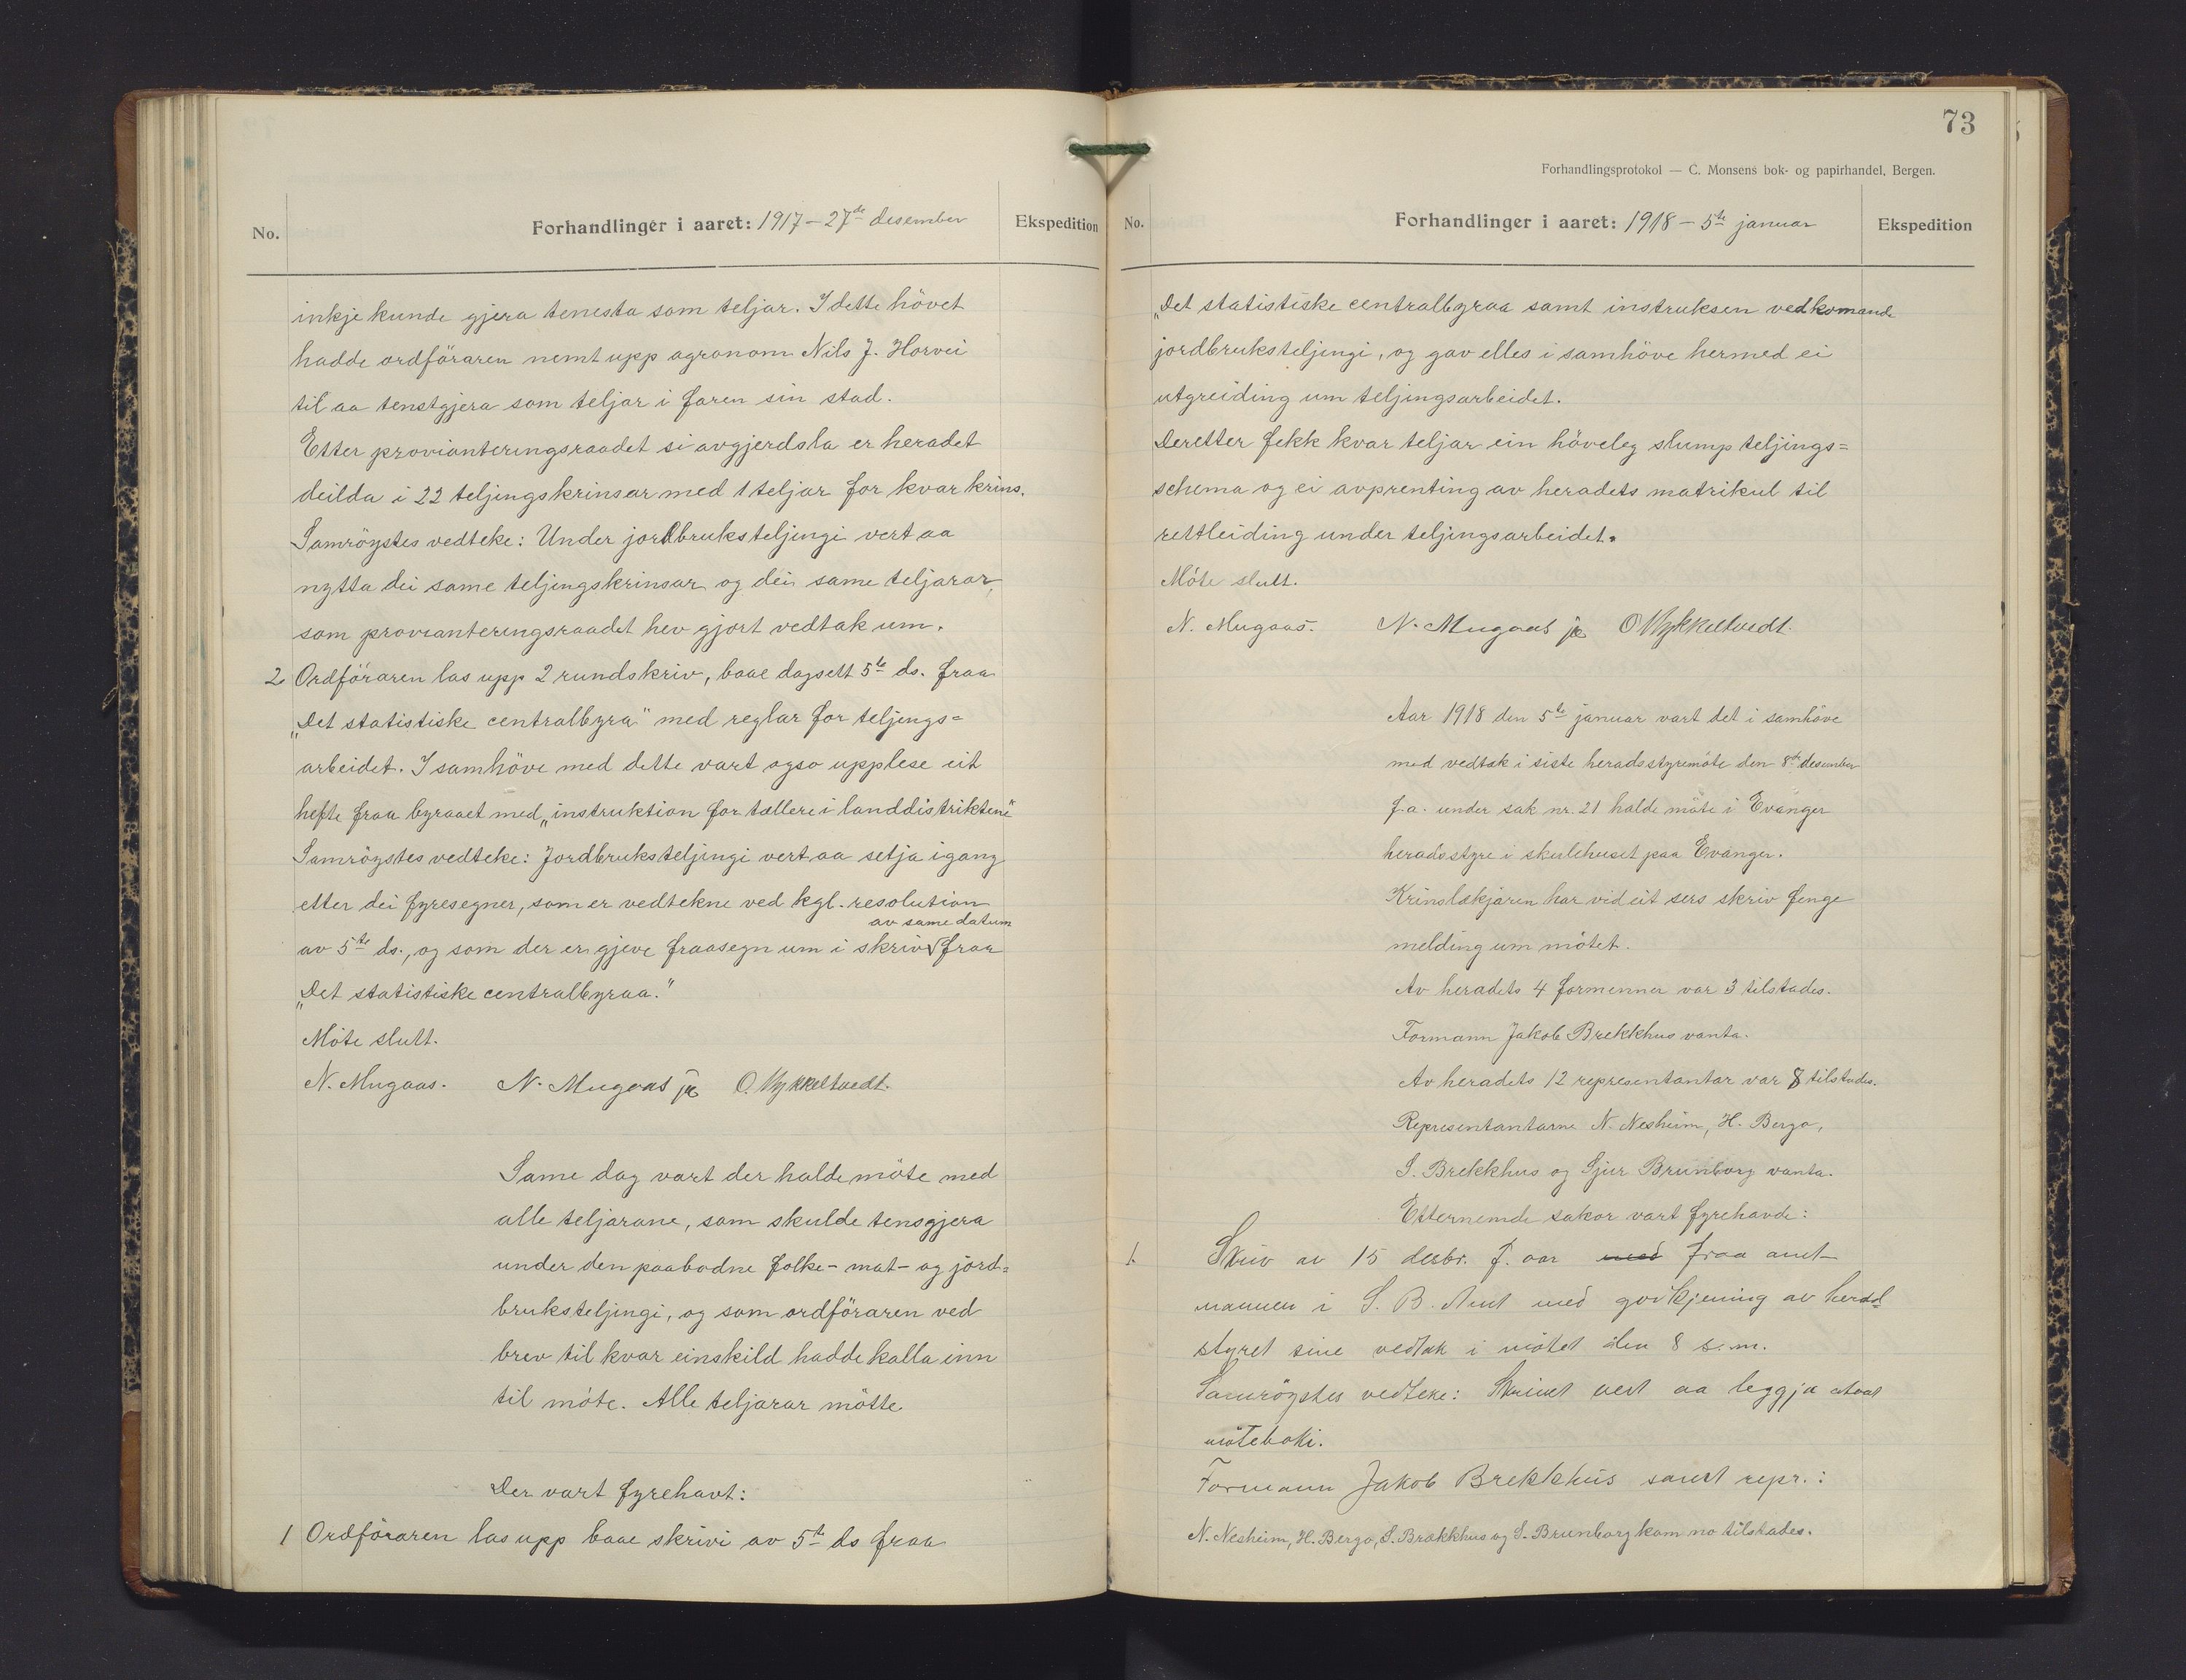 No.
Forhandlinger i aaret: 1917 – 27de desember
Ekspedition
inkje kunde gjera tenesta som teljar. I dette hövet
hadde ordföraren nemt upp agronom Nils J. Horvei
til aa tenstgjera som teljar i faren sin stad.
Etter provianteringsraadet si avgjerdsla er heradet
deilda i 22 teljingskrinsar med 1 teljar for kvar krins.
Samröystes vedteke: Under jordbruksteljingi vert aa
nytta dei same teljingskrinsar og dei same teljarar,
som provianteringsraadet hev gjort vedtak um.
2 Ordföraren las upp 2 rundskriv, baae dagsett 5te ds. fraa
„Det statistiske centralbyra" med reglar for teljings=
arbeidet. I samhöve med dette vart ogso upplese eit
hefte fraa byraaet med „instruktion for tællere i landdistriktene"
Samröystes vedteke: Jordbruksteljingi vert aa setja igang
etter dei fyresegner, som er vedtekne ved kgl. resolution
av same datum
av 5te ds., og som der er gjeve fraasegn um i skriv √ fraa
„Det statistiske centralbyraa."
Möte slutt.
N. Mugaas. N. Mugaas jr O. Vykkeltvedt.
Same dag vart der halde möte med
alle teljarane, som skulde tensgjera
under den paabodne folke- mat- og jord=
bruksteljingi, og som ordföraren ved
brev til kvar einskild hadde kalla inn
til möte. Alle teljarar mötte
Der vart fyrehavt:
1 Ordföraren las upp baae skrivi av 5te ds fraa
73
Forhandlingsprotokol — C. Monsens bok- og papirhandel, Bergen.
No.
Forhandlinger i aaret: 1918 – 5te januar
Ekspedition
„Det statistiske centralbyraa samt instruksen vedkomande
jordbruksteljingi, og gav elles i samhöve hermed ei
utgreiding um teljingsarbeidet.
Deretter fekk kvar teljar ein höveleg slump teljings=
schema og ei avprenting av heradets matrikul til
rettleiding under teljingsarbeidet.
Möte slutt.
N. Mugaas. N. Mugaas jr O. Vykkeltvedt.
Aar 1918 den 5te januar vart det i samhöve
med vedtak i siste heradsstyremöte den 8de desember
f.a. under sak nr. 21 halde möte i Evanger
heradsstyre i skulehuset paa Evanger.
Krinslækjaren har vid eit sers skriv fenge
melding um mötet.
Av heradets 4 formenner var 3 tilstades.
Formann Jakob Brekkhus vanta.
Av heradets 12 representantar var 8 tilstades.
Representantarne N. Nesheim, H. Bergo,
S. Brekkhus og Sjur Brunborg vanta.
Etternemde sakor vart fyrehavde:
1. Skriv av 15 desbr. f. aar med fraa amt-
mannen i S. B. Amt med godkjening av herad=
styret sine vedtak i mötet den 8 s.m.
Samröystes vedteke: Skrivet vert aa leggja attvat
möteboki.
Formann Jakob Brekkhus samt repr.:
N. Nesheim, H. Bergo, S. Brækkhus og S. Brunborg kom no tilstades.